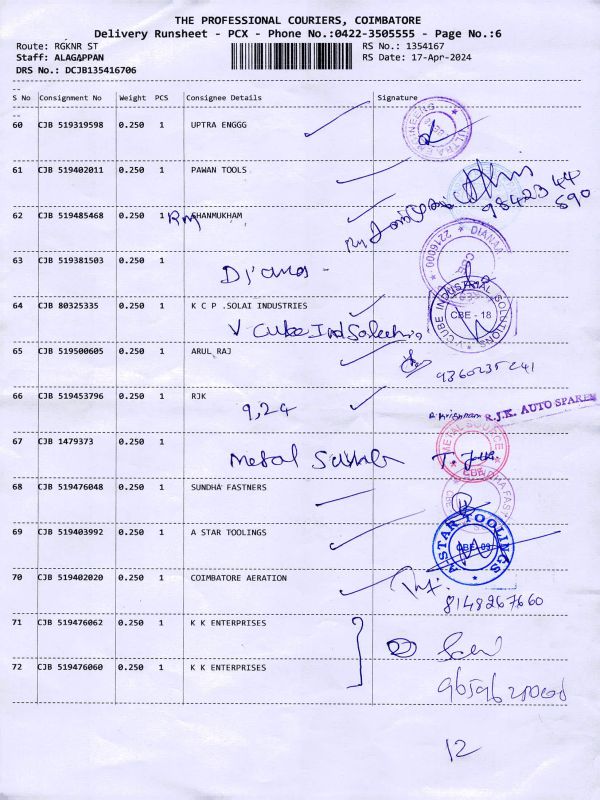 THE PROFESSIONAL COURIERS, COIMBATORE
Delivery Runsheet - PCX - Phone No.:0422-3505555 - Page No.:6
Route: RGKNR ST RS No.: 1354167
Staff: ALAGAPPAN RS Date: 17-Apr-2024
DRS No.: DCJB135416706
S No Consignment No Weight PCS Consignee Details Signature
60 CJB 519319598 0.250 1 UPTRA ENGGG
61 CJB 519402011 0.250 1 PAWAN TOOLS
98423 44
690
62 CJB 519485468 0.250 1 SHANMUKHAM
DIANAA
2216000
63 CJB 519381503 0.250 1
Diana -
64 CJB 80325335 0.250 1 K C P .SOLAI INDUSTRIES
V CUBE INDUSTRIAL SOLUTIONS
CBE - 18
V Cube Ind
65 CJB 519500605 0.250 1 ARUL RAJ
66 CJB 519453796 0.250 1 RJK
9,24
R.J.K. AUTO SPARES
67 CJB 1479373 0.250 1
METAL SOURCE
CBE
Metal
68 CJB 519476048 0.250 1 SUNDHA FASTNERS
69 CJB 519403992 0.250 1 A STAR TOOLINGS
A STAR TOOLINGS
CBE-09
70 CJB 519402020 0.250 1 COIMBATORE AERATION
8148267660
71 CJB 519476062 0.250 1 K K ENTERPRISES
72 CJB 519476060 0.250 1 K K ENTERPRISES
12